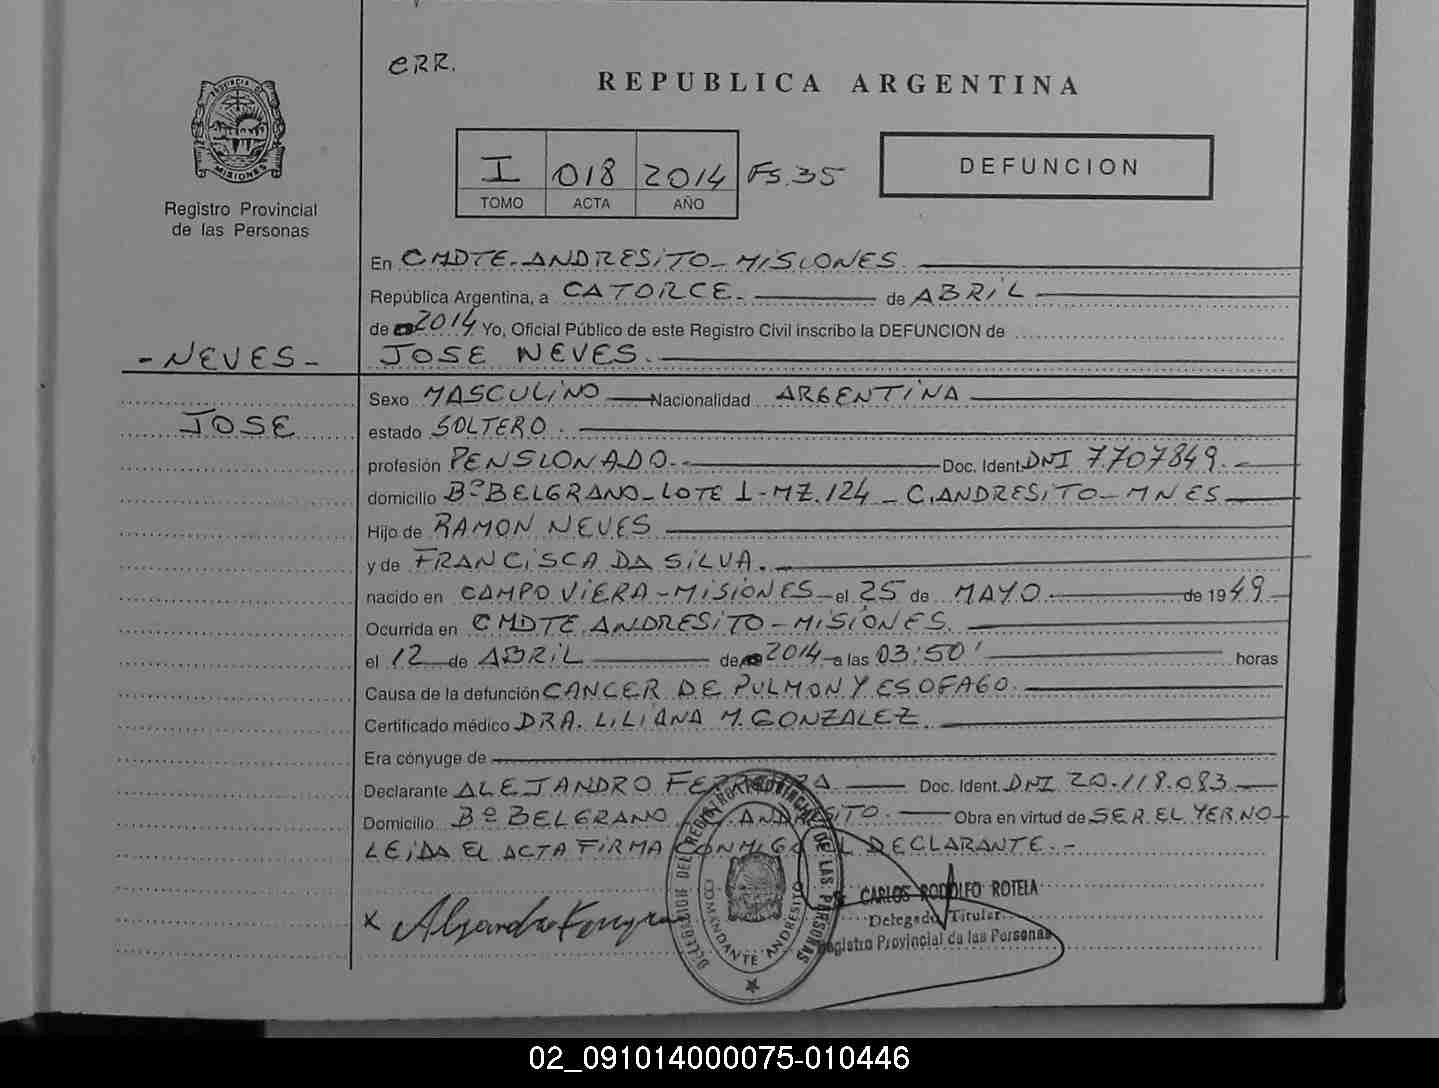 CRR.
REPUBLICA ARGENTINA
PROVINCIA DE
MISIONES
Registro Provincial
de las Personas
I 018 2014 Fs. 35
TOMO ACTA AÑO
DEFUNCION
En CMDTE. ANDRESITO - MISIONES
República Argentina, a CATORCE. de ABRIL
de 2014 Yo, Oficial Público de este Registro Civil inscribo la DEFUNCION de
- NEVES - JOSE NEVES.
Sexo MASCULINO Nacionalidad ARGENTINA
JOSE estado SOLTERO.
profesión PENSIONADO. Doc. Ident. DNI 7.707849.
domicilio Bº BELGRANO - LOTE 1 - MZ. 124 - C. ANDRESITO - MNES
Hijo de RAMON NEVES
y de FRANCISCA DA SILVA.
nacido en CAMPO VIERA - MISIONES el 25 de MAYO de 1949
Ocurrida en CMDTE. ANDRESITO - MISIONES.
el 12 de ABRIL de 2014 a las 03:50' horas
Causa de la defunción CANCER DE PULMON Y ESOFAGO.
Certificado médico DRA. LILIANA M. GONZALEZ.
Era cónyuge de
Declarante ALEJANDRO Doc. Ident. DNI 20.118.083
Domicilio Bº BELGRANO C. ANDRESITO. Obra en virtud de SER EL YERNO
LEIDA EL ACTA FIRMA CONMIGO EL DECLARANTE. -
DELEGACION DEL REGISTRO PROVINCIAL DE LAS PERSONAS
COMANDANTE ANDRESITO
CARLOS RODOLFO ROTELA
Delegado Titular
Registro Provincial de las Personas
x Alejandro
02_091014000075-010446